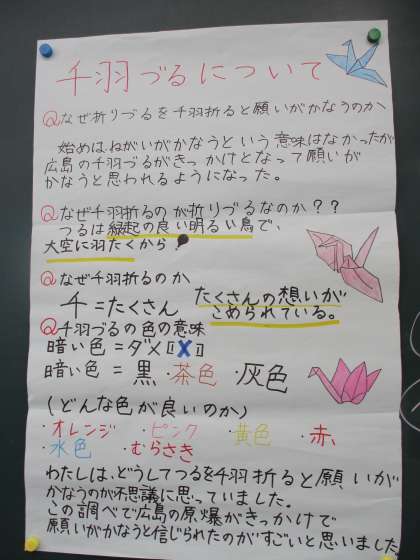 千羽づるについて
Qなぜ折りづるを千羽折ると願いがかなうのか
始めはねがいがかなうという意味はなかったが
広島の千羽づるがきっかけとなって願いが
かなうと思われるようになった。
Qなぜ千羽折るのが折りづるなのか??
つるは縁起の良い明るい鳥で、
大空に羽たくから!
Qなぜ千羽折るのか
千=たくさん たくさんの想いが
こめられている。
Q千羽づるの色の意味
暗い色=ダメ[[X]]
暗い色=黒・茶色・灰色
(どんな色が良いのか)
・オレンジ ・ピンク ・黄色 ・赤
・水色 ・むらさき
わたしは、どうしてつるを千羽折ると願いが
かなうのが不思議に思っていました。
この調べで広島の原爆がきっかけで
願いがかなうと信じられたのがすごいと思いました